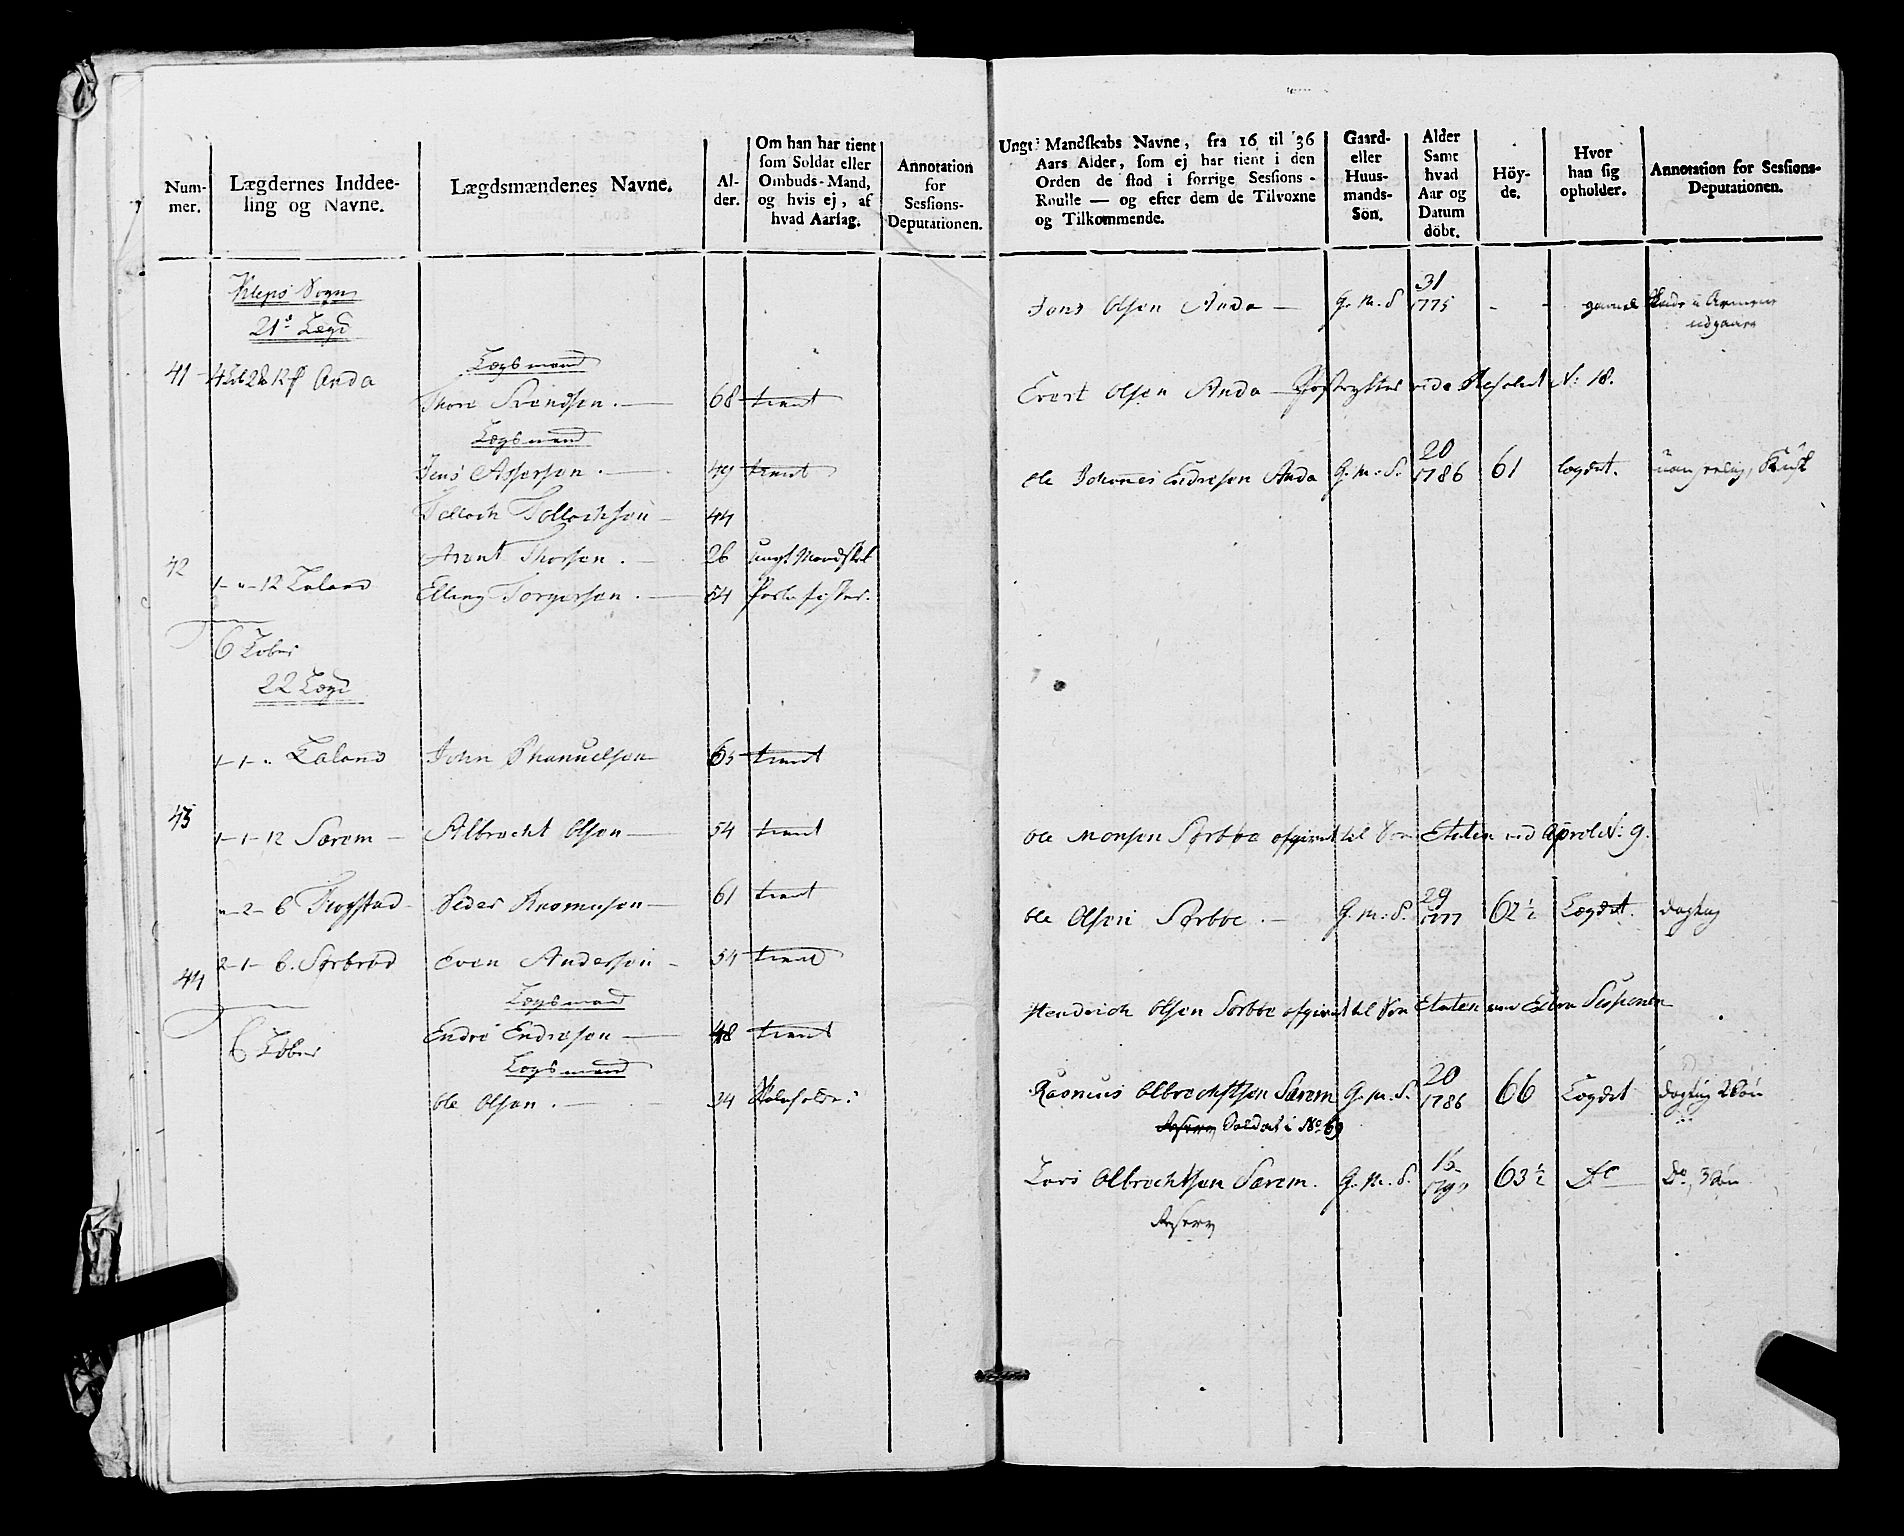 Num-
mer.
Lægdernes Inddee-
ling og Navne.
Lægdsmændenes Navne.
Al-
der.
Om han har tient
som Soldat eller
Ombuds-Mand,
og hvis ej, af
hvad Aarsag.
Annotation
for
Sessions-
Deputationen.
Kleps Sogn
21de Lægd
41 Anda
Lægsmand
Thore Svendsen. 68 tient
Lægsmand
Jens Assersen. 49 tient
Tollach Tollachsen 44
Arent Thorsen. 26 ungt Mandskab
42
1 - " - 12 Laland Elling Torgersen. 54
6 Løber
22 Lægd
1 - 1 - " Laland John Phanuelsen 65 tient
43
1 - 1 - 12 Særem Albrecht Olsen 54 tient
" - 2 - 6 Trogstad Peder Rasmusen 61 tient
44
2 - 1 - 6. Sørbrød Even Andersen 54 tient
Lægsmand
6 Løber Endre Endresen 48 tient
Lægsmand
Ole Olsen. 34
Ungt Mandskabs Navne, fra 16 til 36
Aars Alder, som ej har tient i den
Orden de stod i forrige Sessions-
Roulle — og efter dem de Tilvoxne
og Tilkommende.
Gaard-
eller
Huus-
mands-
Sön.
Alder
Samt
hvad
Aar og
Datum
döbt.
Höy-
de.
Hvor
han sig
opholder.
Annotation for Sessions-
Deputationen.
31
Jens Olsen Anda — G. M. S. 1775 - - gammel Skade i Armene
udgaaer
Evert Olsen Anda — N: 18.
20
Ole Johannes Endresen Anda G. M: S: 1786 61 Lægdet. Kusk
Ole Monsen Sørbøe afgivet til Søe Etaten ved Aprol N: 9.
29
Ole Olsen Sørbøe. — G. M: S. 1777 62 ½ Lægdet. dogtig
Henderich Olsen Sørbøe afgivet til Søe Etaten ved Extra Sessionen
20
Rasmus Olbrechtsen Særem G. M. S. 1786 66 Lægdet dogtig
Reserv Soldat i No 69
15
Lars Olbrechtsen Særem. G. M. S. 63 ½ Do Do,
Reserv